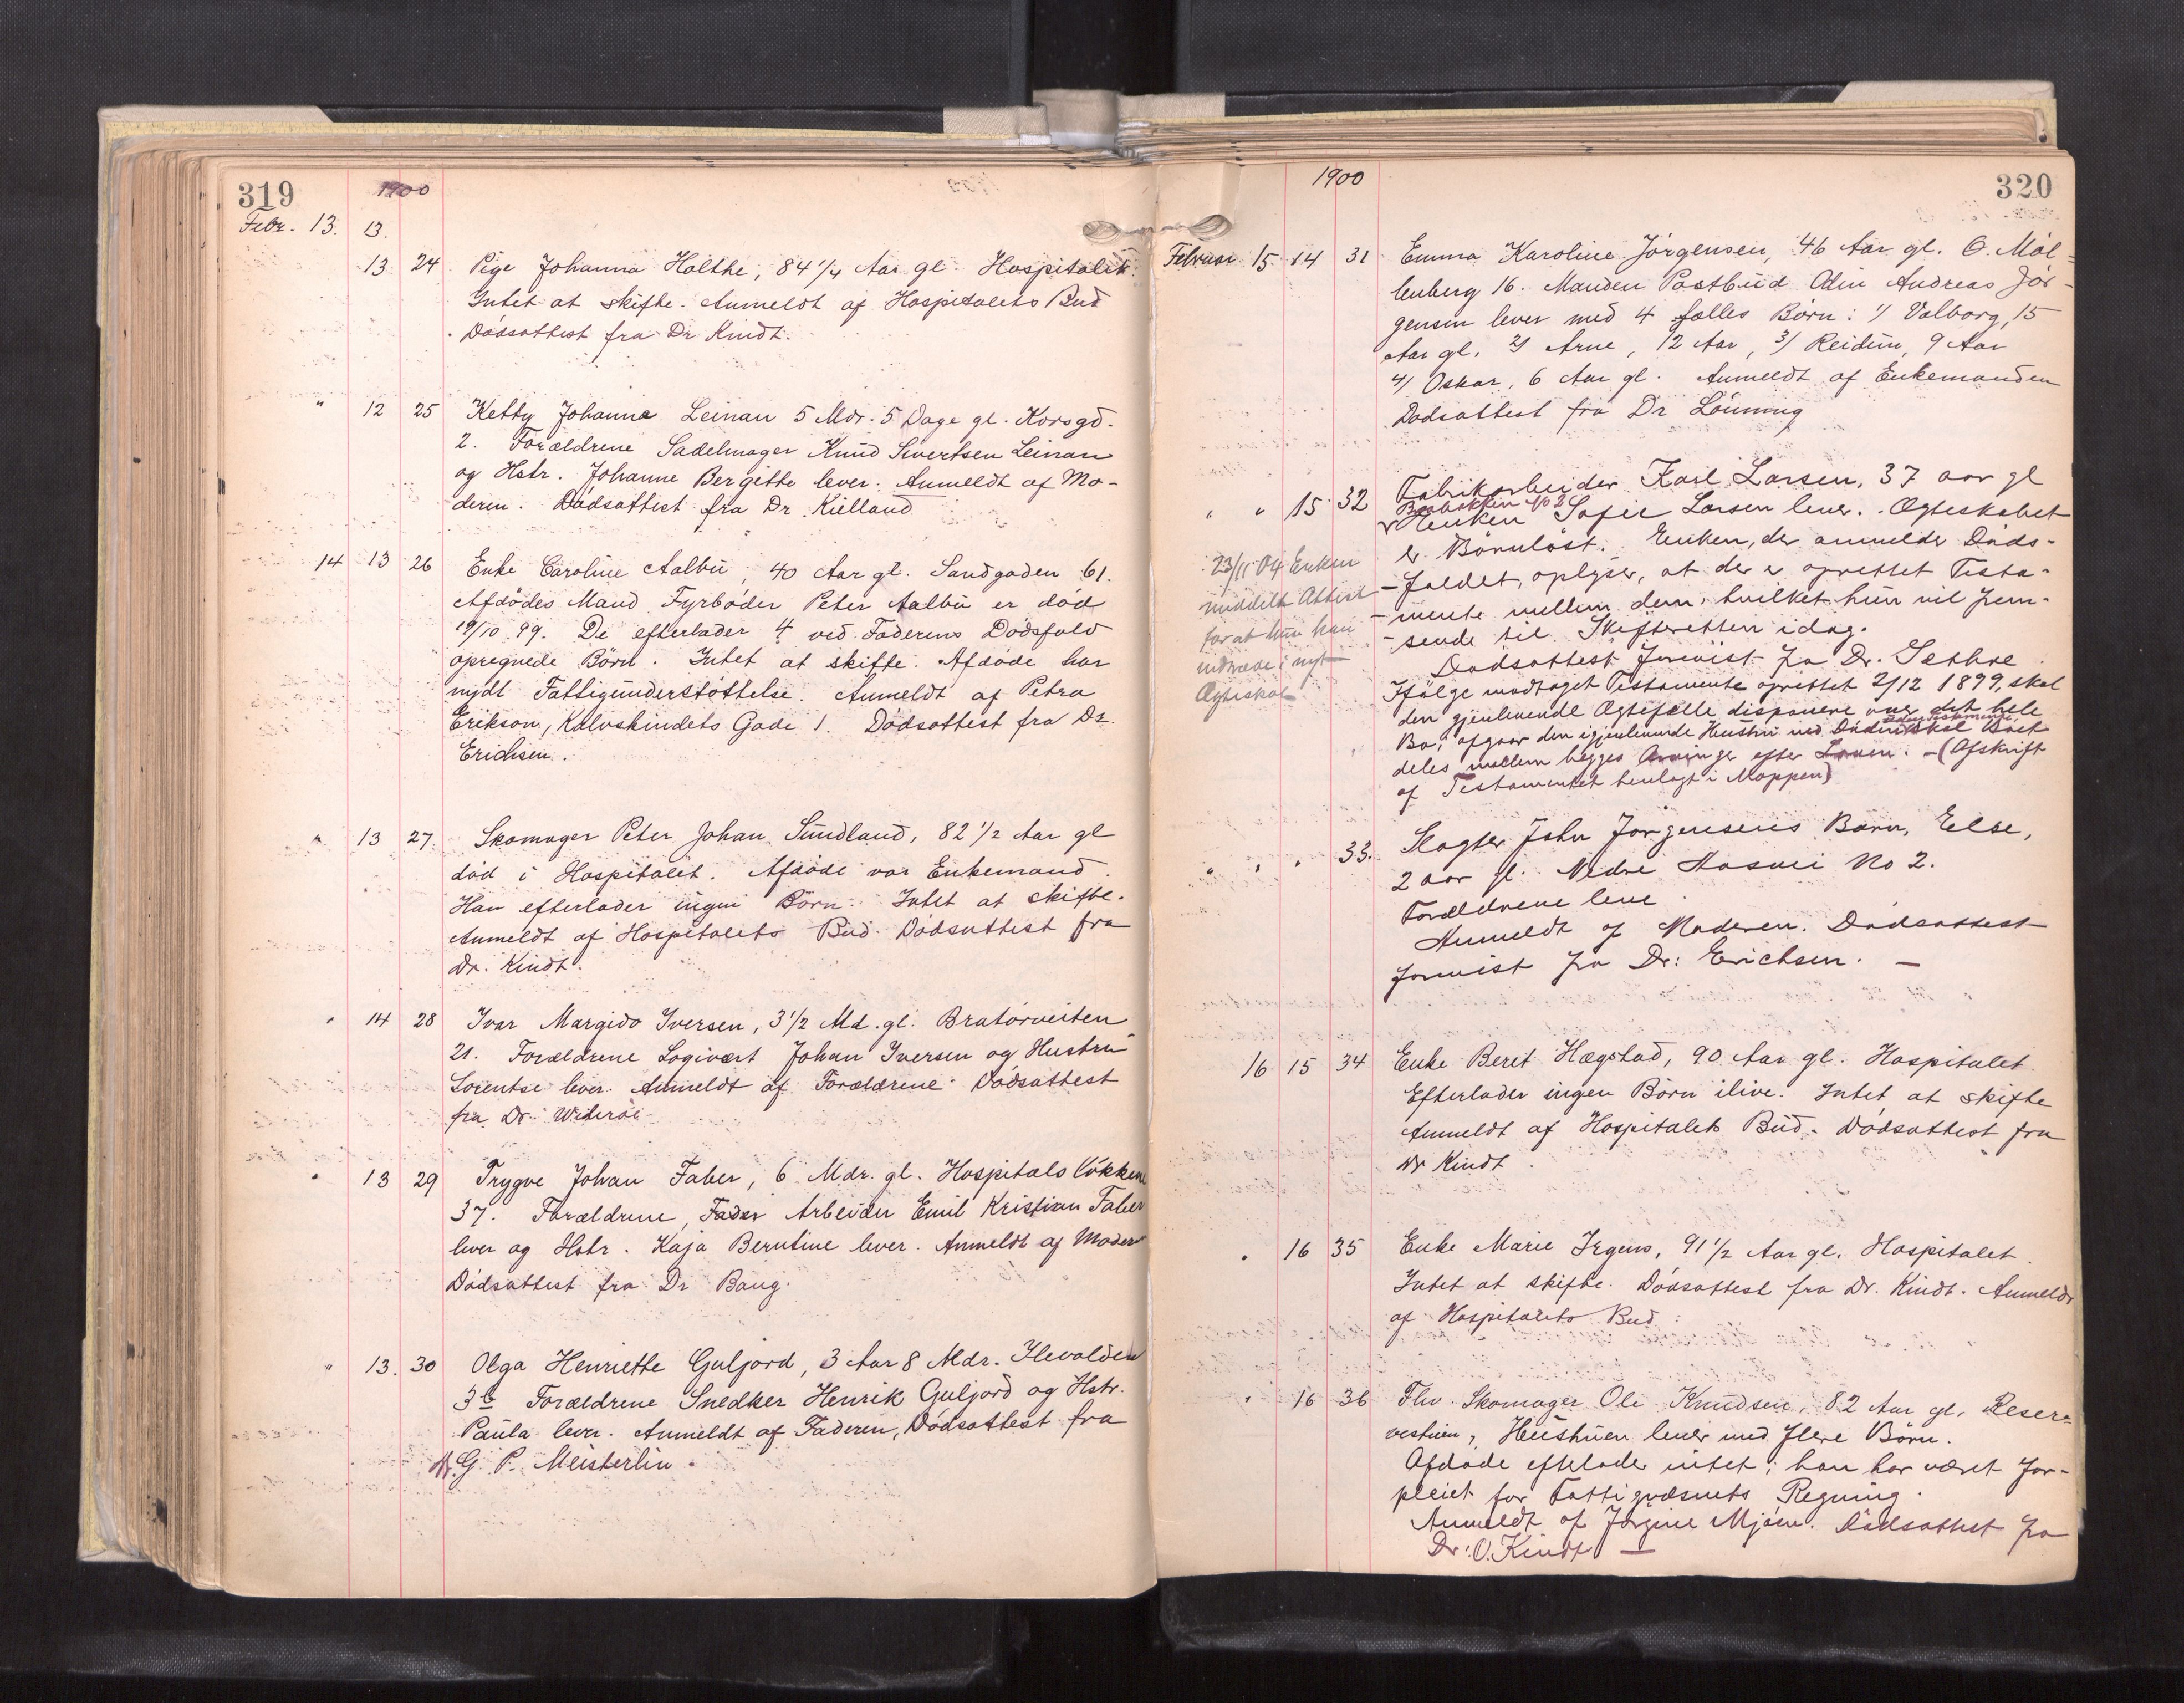 319
1900
Febr. 13. 13.
13 24 Pige Johanna Holthe, 84 1/4 Aar gl. Hospitalet.
Intet at skifte. Anmeldt af Hospitalets Bud
Dødsattest fra Dr Kindt.
" 12 25 Ketty Johanne Leinan 5 Mdr. 5 Dage gl. Korsgd.
2. Forældrene Sadelmager Knud Sivertsen Leinan
og Hstr. Johanne Bergitte lever. Anmeldt af Mo-
deren. Dødsattest fra Dr. Kielland
14 13 26 Enke Caroline Aalbu, 40 Aar gl. Sandgaden 61.
Afdødes Mand Fyrbøder Peter Aalbu er død
19/10 99. De efterlader 4 ved Faderens Dødsfald
opregnede Børn. Intet at skifte. Afdøde har
nydt Fattigunderstøttelse. Anmeldt af Petra
Erikson, Kalvskindets Gade 1. Dødsattest fra Dr.
Erichsen.
" 13 27. Skomager Peter Johan Sundland, 82 1/2 Aar gl
død i Hospitalet. Afdøde var Enkemand.
Han efterlader ingen Børn. Intet at skifte.
Anmeldt af Hospitalets Bud. Dødsattest fra
Dr. Kindt.
" 14 28 Ivar Margido Iversen, 3 1/2 Md. gl. Bratørveiten
21. Forældrene Logivært Johan Iversen og Hustru
Lorentse lever. Anmeldt af Forældrene. Dødsattest
fra Dr. Widerøe
" 13 29 Trygve Johan Faber, 6 Mdr. gl. Hospitals Løkken
37. Forældrene, Fader Arbeider Emil Kristian Faber
lever og Hstr. Kaja Berntine lever. Anmeldt af Moder
Dødsattest fra Dr Bang.
" 13. 30 Olga Henriette Guljord, 3 Aar 8 Mdr. Ilevolden
3 b Forældrene Snedker Henrik Guljord og Hstr.
Paula lever. Anmeldt af Faderen, Dødsattest fra
Dr. G. P. Meisterlin.
1900
320
Februar 15 14 31 Emma Karoline Jørgensen, 46 Aar gl. O. Møl-
lenberg 16. Manden Postbud Odin Andreas Jør-
gensen lever med 4 fælles Børn: 1/ Valborg, 15
Aar gl. 2/ Arne, 12 Aar, 3/ Reidun, 9 Aar
4/ Oskar, 6 Aar gl. Anmeldt af Enkemanden
Dødsattest fra Dr Lønning
" " 15 32 Fabrikarbeider Karl Larsen, 37 aar gl
Bakken No 2
Enken Sofie Larsen lever. Ægteskabet
er Børnløst. Enken, der anmelder Døds-
faldet, oplyser, at der er oprettet Testa-
mente mellem dem, hvilket hun vil frem-
sende til Skifteretten idag.
Dødsattest forevist fra Dr. Sethne
Ifølge modtaget Testamente oprettet 2/12 1899, skal
den gjenlevende Ægtefælle disponere over det hele
Bo; afgaar den igjenlevende Hustru ved Døden skal Boet
deles mellem begges Arvinge efter Loven. - (Afskrift
af Testamentet henlagt i Mappen)
23/11 04 Enken
meddelt Attest
for at hun kan
indtræde i nyt
Ægteskab
" " " 33. Slagter John Jørgensens Barn, Else,
2 aar gl. Nedre No 2.
Forældrene leve.
Anmeldt af Moderen. Dødsattest
forevist fra Dr: Erichsen. -
16 15 34 Enke Beret Hægstad, 90 Aar gl. Hospitalet.
Efterlader ingen Børn ilive. Intet at skifte
Anmeldt af Hospitalets Bud. Dødsattest fra
Dr Kindt.
" 16 35 Enke Marie Irgens, 91 1/2 Aar gl. Hospitalet.
Intet at skifte. Dødsattest fra Dr. Kindt. Anmeldt
af Hospitalets Bud.
" 16 36 Fhv. Skomager Ole Knudsen, 82 Aar gl. Reser-
vestuen, Hustruen lever med flere Børn.
Afdøde efterlader intet; han har været for-
pleiet for Fattigvæsnets Regning.
Anmeldt af Jørgine Mjøen. Dødsattest fra
Dr: O. Kindt -